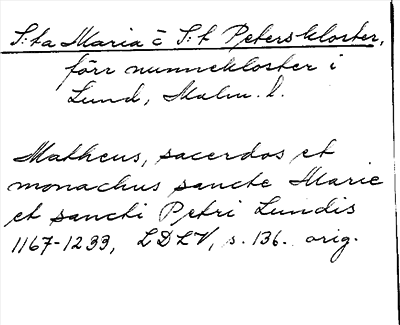 S:ta Maria o S:t Peterskloster,
förr nunnekloster i
Lund, Malm. l.
Matheus, sacerdos et
monachus sancte Marie
et sancti Petri Lundis
1167-1233, LDLV, s. 136. orig.